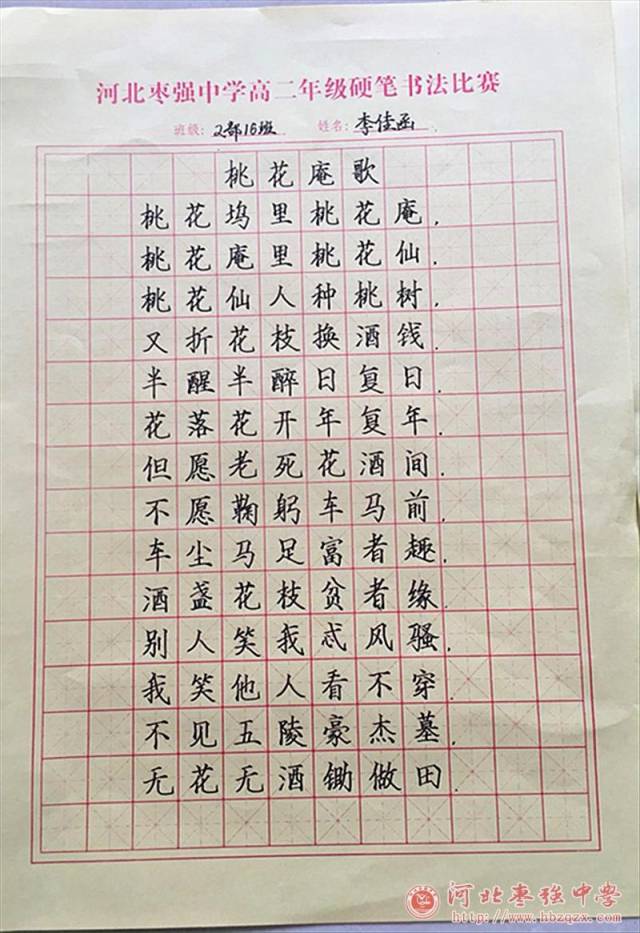 河北枣强中学高二年级硬笔书法比赛
班级：2部16班 姓名：李佳函
桃花庵歌
桃花坞里桃花庵.
桃花庵里桃花仙.
桃花仙人种桃树.
又折花枝换酒钱.
半醒半醉日复日.
花落花开年复年.
但愿老死花酒间.
不愿鞠躬车马前.
车尘马足富者趣.
酒盏花枝贫者缘.
别人笑我忒风骚.
我笑他人看不穿.
不见五陵豪杰墓.
无花无酒锄做田.
河北枣强中学
http://www.hbzqzx.com